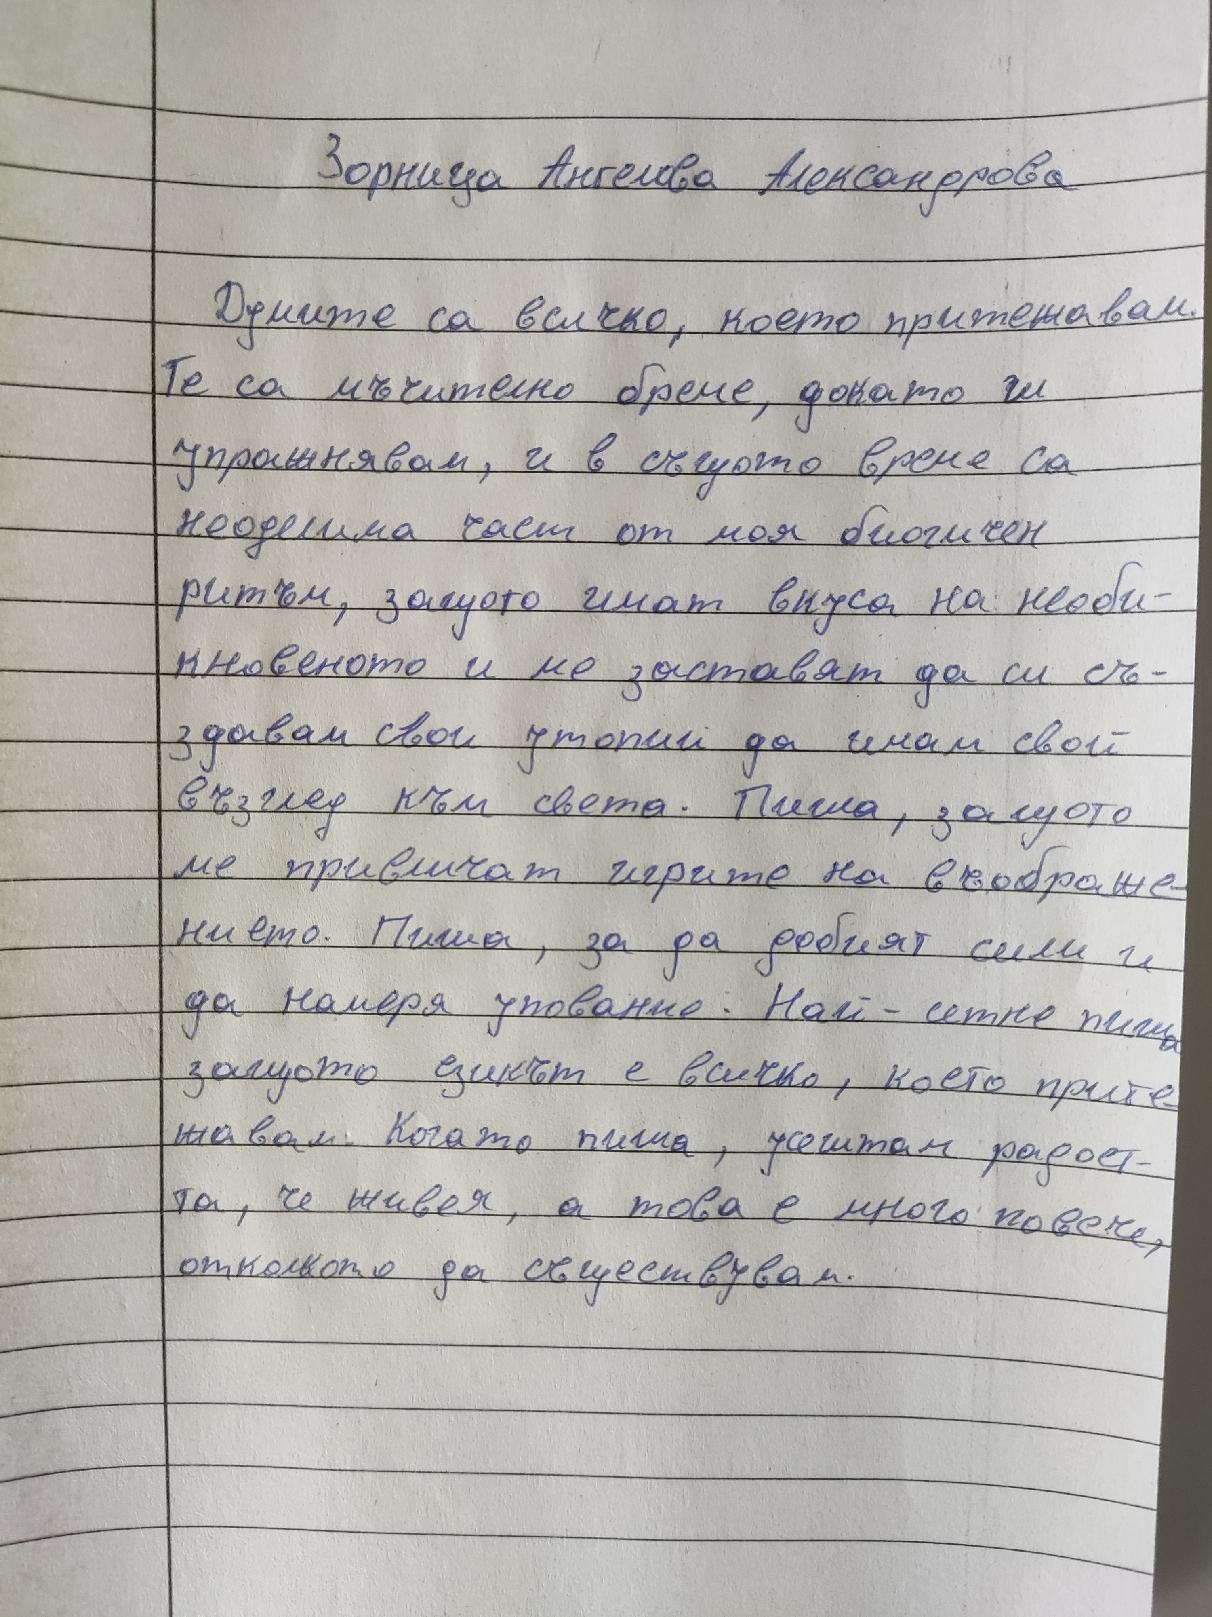 Зорница Ангелова Александрова
Думите са всичко, което притежавам.
Те са мъчително бреме, докато ги
упражнявам, и в същото време са
неоделима част от моя биогичен
ритъм, защото имат вкуса на необи-
кновеното и ме заставят да си съ-
здавам свои утопии да имам свой
възглед към света. Пиша, защото
ме привличат игрите на въображе-
нието. Пиша, за да добият сили и
да намеря упование. Най-сетне пиша
защото езикът е всичко, което прите-
жавам. Когато пиша, усещам радост-
та, че живея, а това е много повече,
отколкото да съществувам.